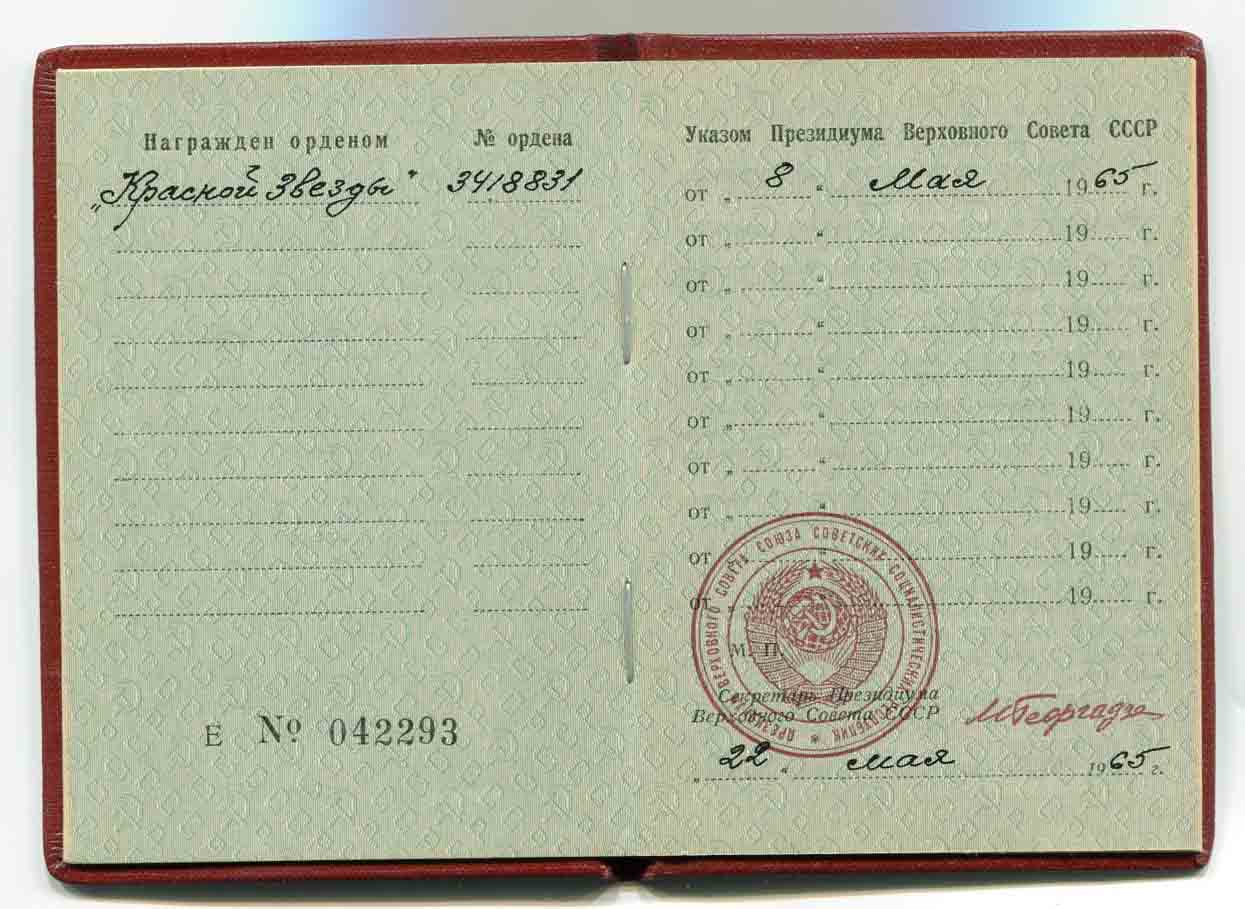 Награжден орденом № ордена
„Красной Звезды" 3418831
Е № 042293
Указом Президиума Верховного Совета СССР
от „ 8 “ Мая 1965 г.
от „ “ 19 г.
от „ “ 19 г.
от „ “ 19 г.
от „ “ 19 г.
от „ “ 19 г.
от „ “ 19 г.
от „ “ 19 г.
от „ “ 19 г.
от „ “ 19 г.
ПРЕЗИДИУМ ВЕРХОВНОГО СОВЕТА СОЮЗА СОВЕТСКИХ СОЦИАЛИСТИЧЕСКИХ РЕСПУБЛИК
М. П.
Секретарь Президиума
Верховного Совета СССР МГеоргадзе
„ 22 “ мая 1965 г.